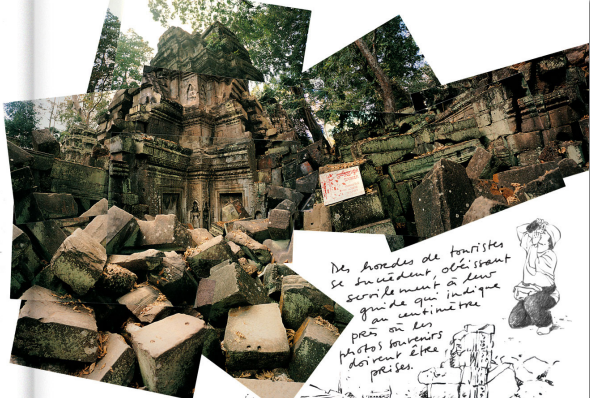 Des hordes de touristes
se succèdent, obéissant
servilement à leur
guide qui indique
au centimètre
près où les
photos souvenirs
doivent être
prises.